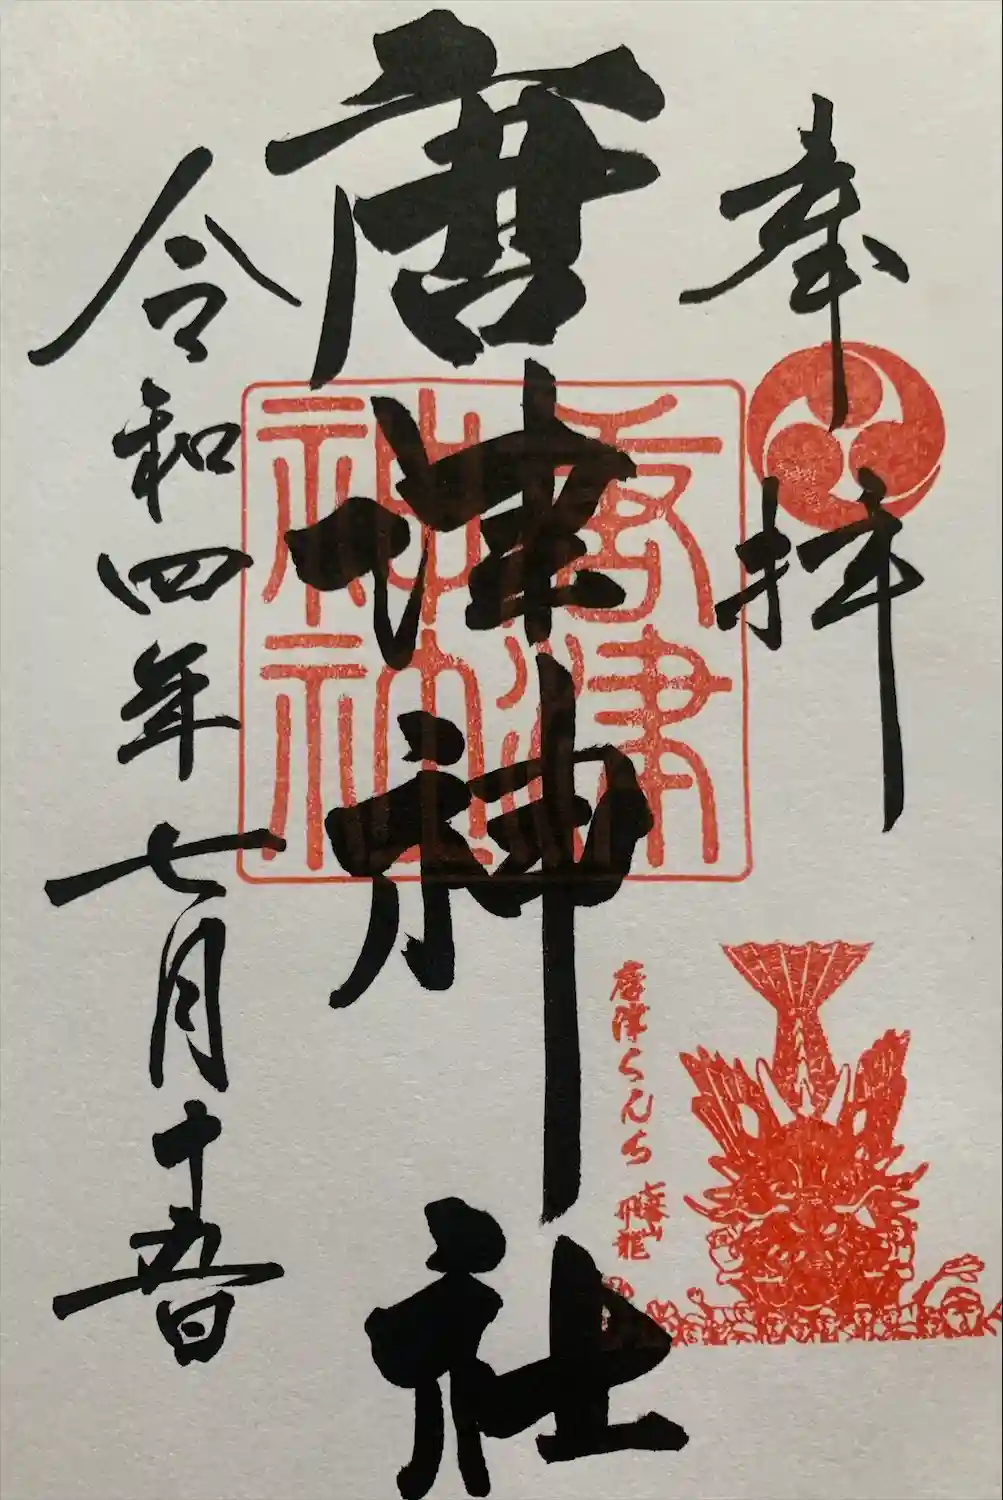 奉拝
唐津神社
唐津神社
唐津くんち
飛龍
令和四年七月十五日